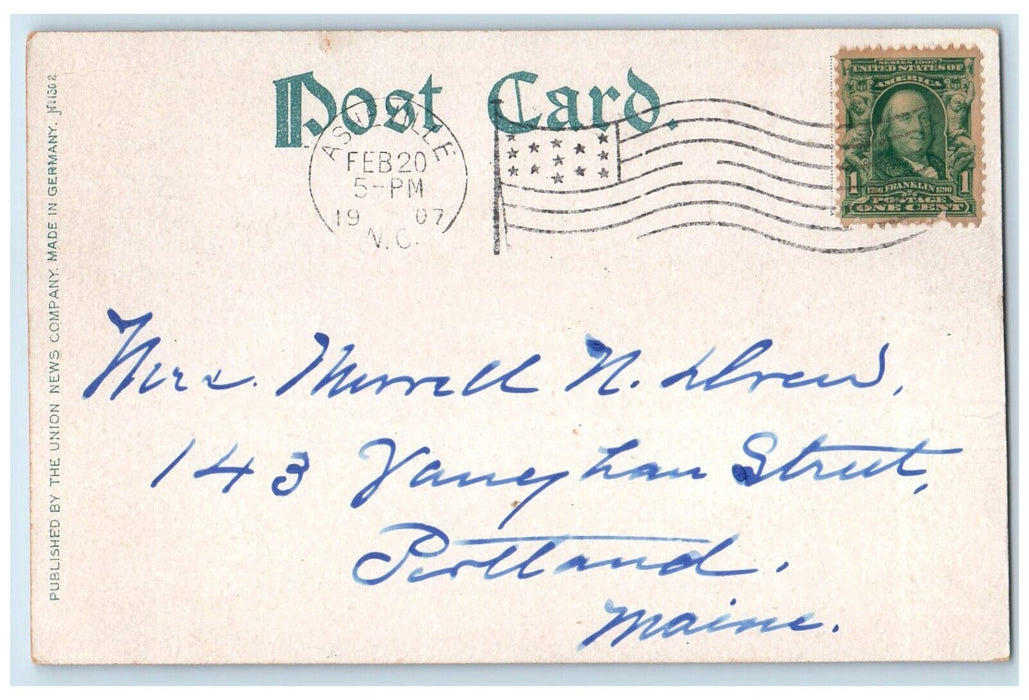 Post Card.
ASHEVILLE
FEB 20
5-PM
19 07
N.C.
SERIES 1902
UNITED STATES OF
AMERICA
1 1706 FRANKLIN 1790 1
POSTAGE
ONE CENT
Mrs. Merrell N. Drew,
143 Vaughan Street,
Portland.
Maine.
PUBLISHED BY THE UNION NEWS COMPANY. MADE IN GERMANY.